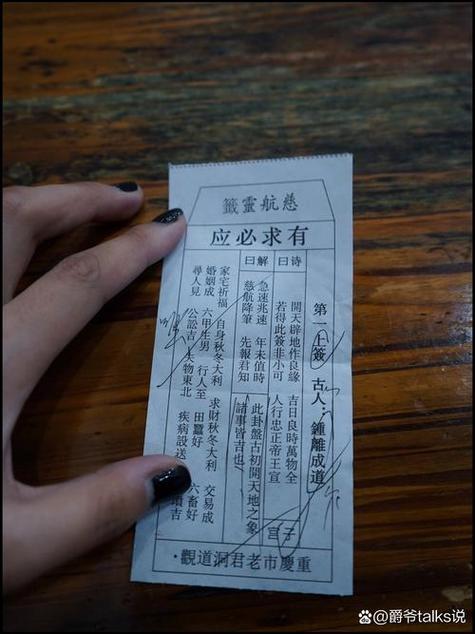 慈航靈籤
有求必应
第一上簽 古人：鍾離成道
子宮
诗曰
開天辟地作良緣 吉日良時萬物全
若得此簽非小可 人行忠正帝王宣
解曰
急速兆速 年未值時
慈航降筆 先報君知
此卦盤古初開天地之象
諸事皆吉也
家宅祈福 自身秋冬大利 求財秋冬大利 交易成
婚姻成 六甲生男 行人至 田蠶好 六畜好
尋人見 公訟吉 失物東北 疾病設送 墳吉
重慶市老君洞道觀·
@爵爷talks说